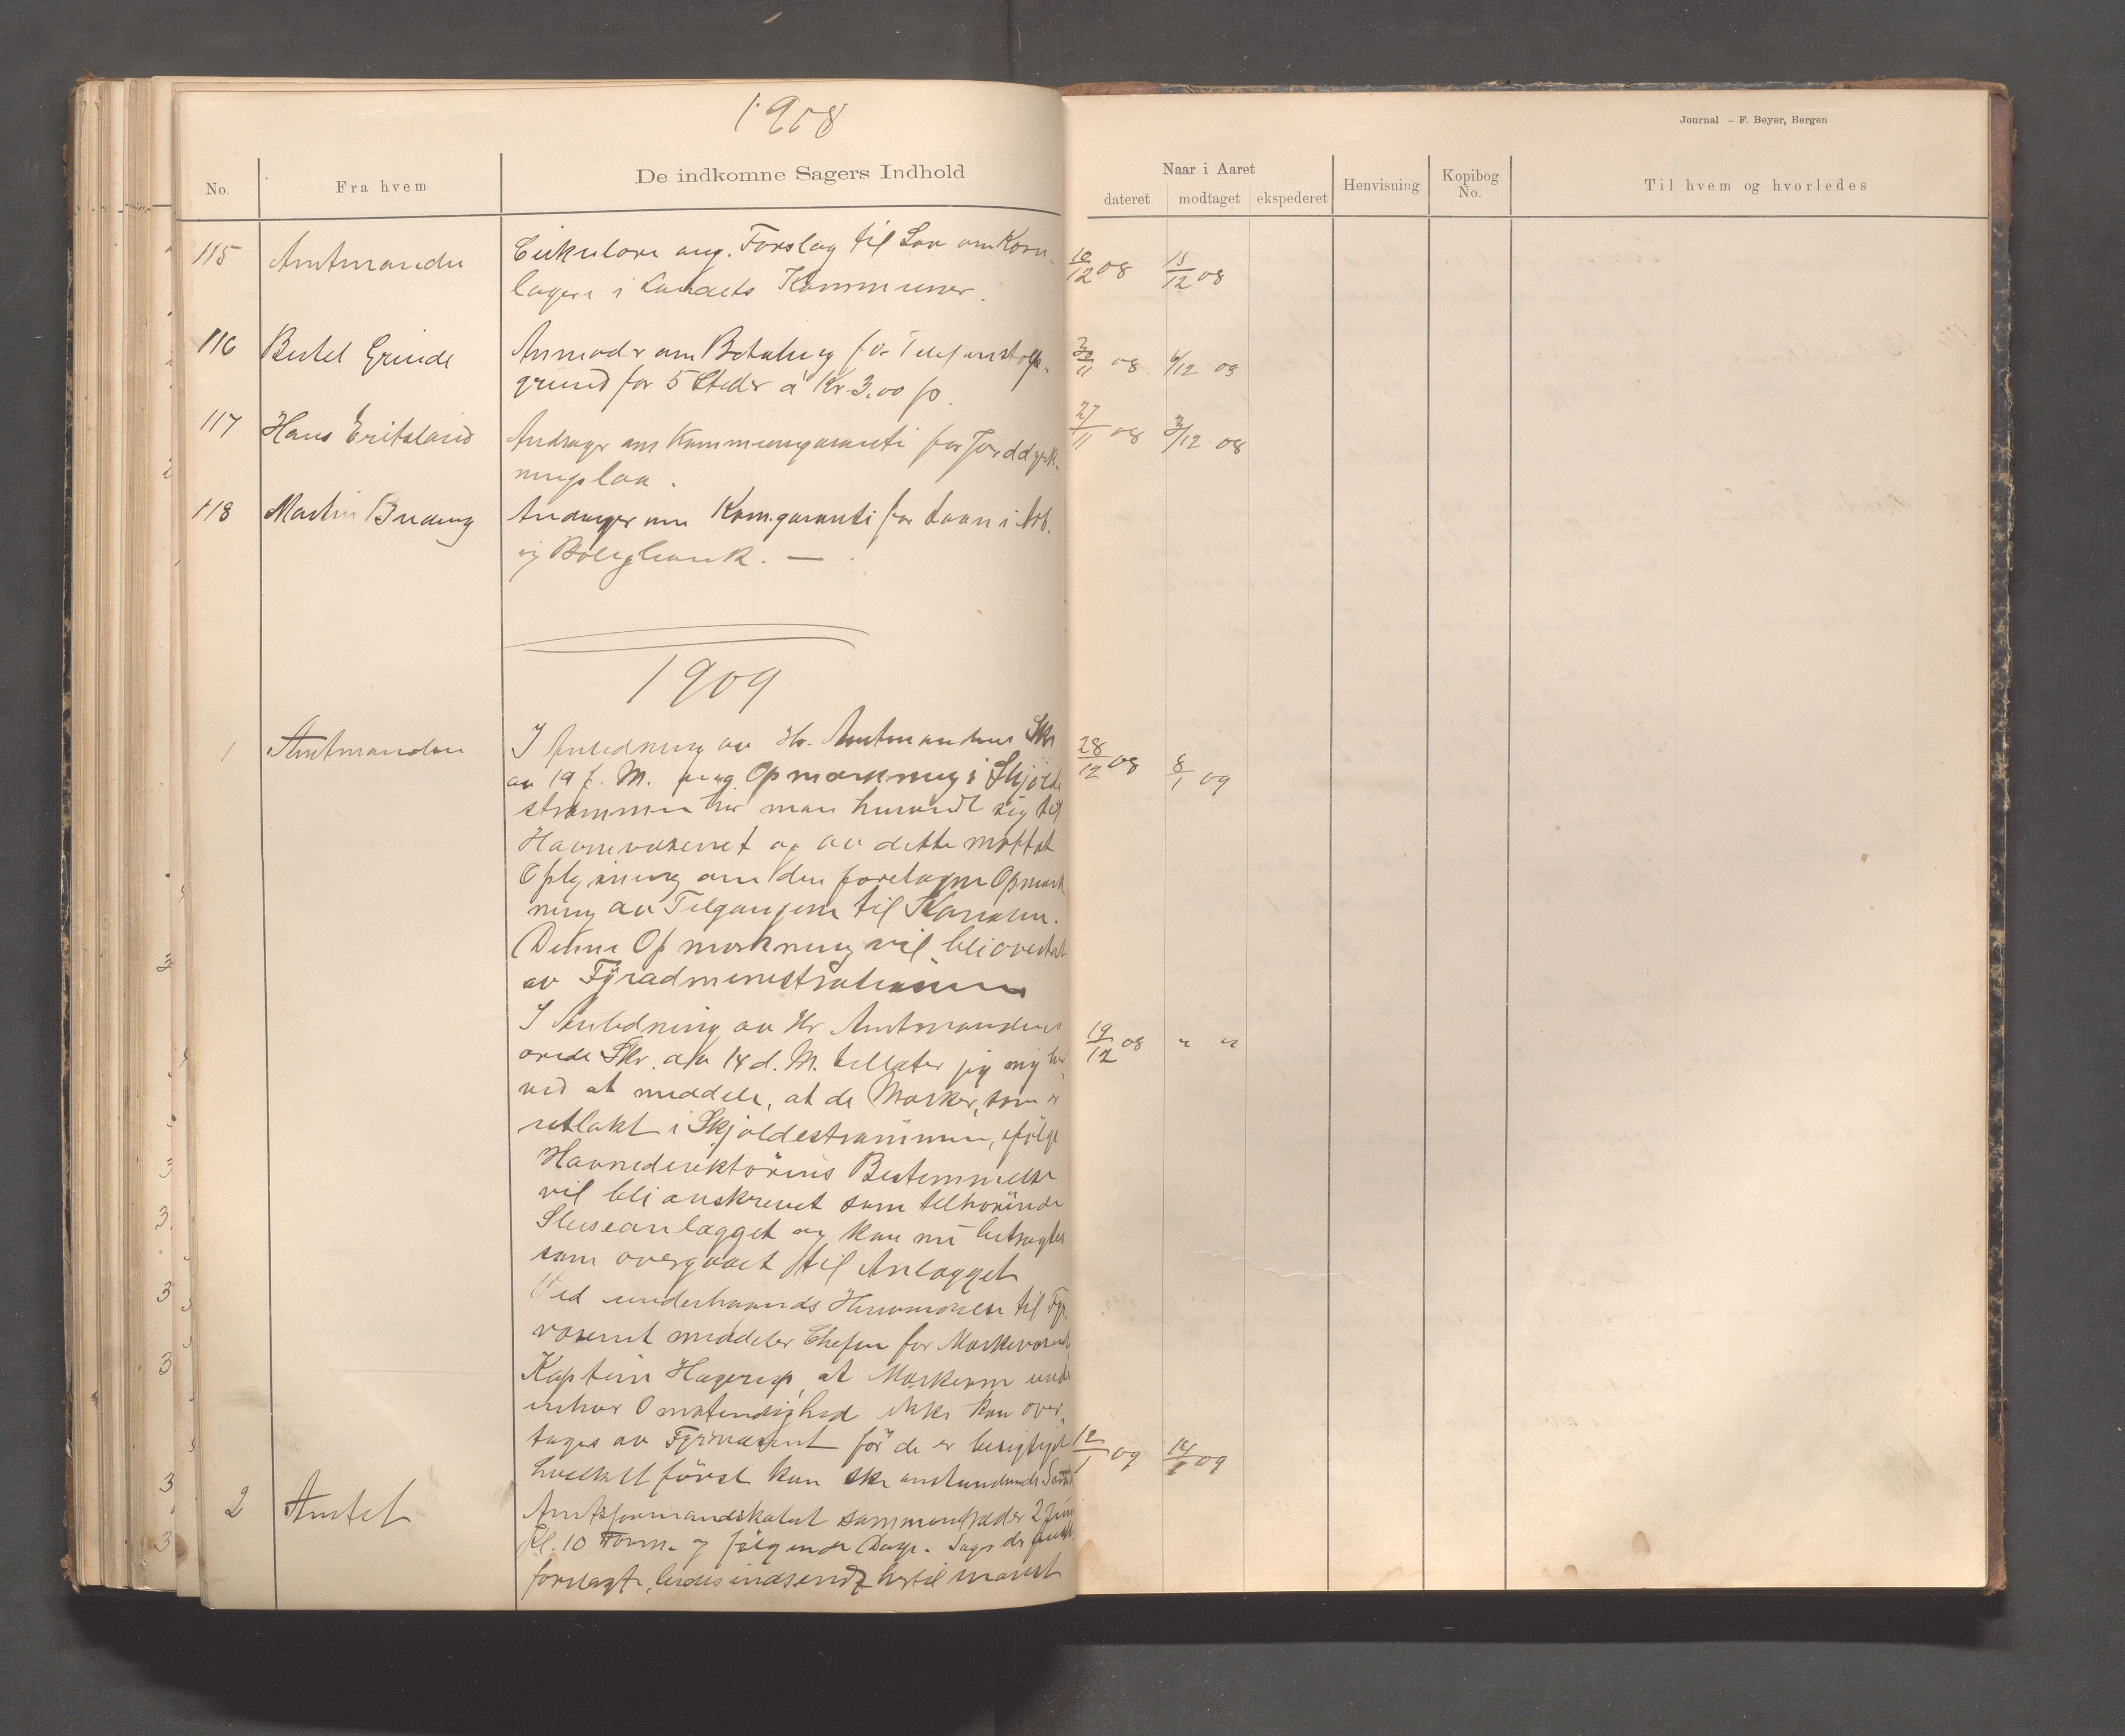 1908
Journal – F. Beyer, Bergen
No. Fra hvem De indkomne Sagers Indhold
Naar i Aaret
dateret modtaget ekspederet Henvisning Kopibog No. Til hvem og hvorledes
115 Amtmanden Cirkulære ang. Forslag til Lov om Korn- 10/12 08 15/12 08
lagere i Landets Kommuner.
116 Bertel Grinde Anmoder om Betaling for Telefonstolpe- 30/11 08 6/12 08
grund for 5 Steder à Kr. 3.00 p
117 Hans Eritsland Andrager om Kommunegaranti for Jorddyrk- 27/11 08 3/12 08
ningslaan.
118 Martin Andrager om Kom.garanti for Laan i Arb.
og Boligbank. —
1909
1 Amtmanden I Anledning av Hr. Amtmandens Skr 28/12 08 8/1 09
av 19 f. M. ang. Opmerkning i Skjolde
strømmen har man henvendt sig til
Havnevæsenet og av dette mottat
Oplysning om den foretagne Opmerk
ning av Tilgangen til Kanalen.
Denne Opmerkning vil bli overtat
av Fyradministrationen
I Anledning av Hr Amtmandens 19/12 08 " "
ærede Skr. av 14 d. M. tillater jeg mig her
ved at meddele, at de Merker, som er
utlakt i Skjoldestrømmen, ifølge
Havnedirektørens Bestemmelse
vil bli anskrevet som tilhørende
Sluseanlægget og kan nu betragtes
som overgaaet til Anlægget
Ved underhaands Henvendelse til Fyr-
væsenet meddeler Chefen for Merkevæsenet,
Kaptein Hagerup, at Merkerne under
enhver Omstendighed ikke kan over-
tages av Fyrvæsenet før de er besigtiget 12/1 09 14/1 09
hvilket først kan ske
2 Amtet Amtsformandskabet sammentræder 2 Juni
Kl. 10 Form. og følgende Dage. Sager der
forelagt, bedes indsendt hertil